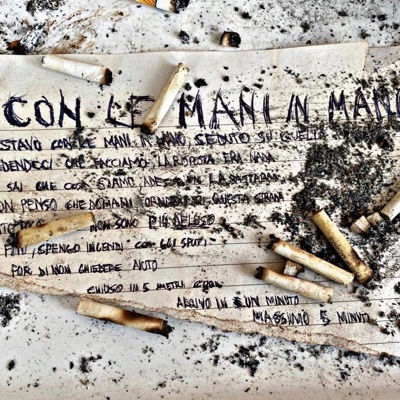 CON LE MANI IN MANO
STAVO CON LE MANI IN MANO, SEDUTO SU QUELLA
CHE FACCIAMO, LA RISPOSTA ERA NADA
SAI CHE COSA SIAMO ADESSO
ON PENSO CHE DOMANI TORNERÒ SU QUESTA STRADA
NON SONO PIÙ DELUSO
FUTU, SPENGO INCENDI CON GLI SPUTI
PUR DI NON CHIEDERE AIUTO
CHIUSO IN 5 METRI CUBI
ARRIVO IN UN MINUTO
MASSIMO 5 MINUTI